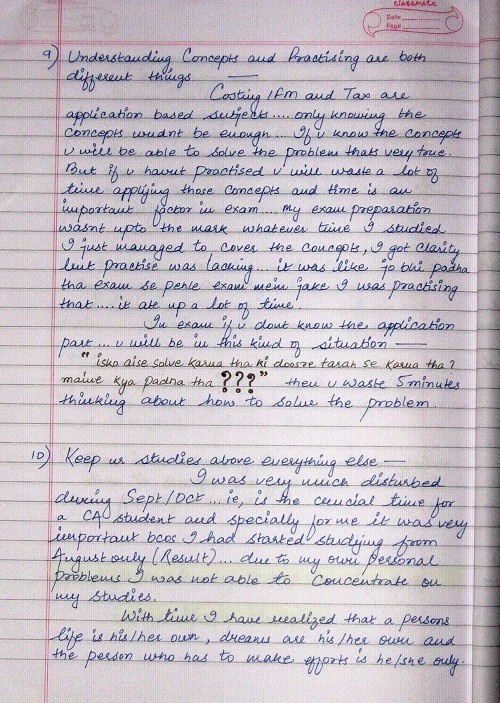 classmate
Date
Page
9) Understanding Concepts and Practising are both
different things —
Costing/FM and Tax are
application based subjects.... only knowing the
concepts wudnt be enough... If u know the concepts
u will be able to solve the problem thats very true.
But if u havnt practised u will waste a lot of
time applying those concepts and time is an
important factor in exam.... my exam preparation
wasnt upto the mark whatever time I studied
I just managed to cover the concepts, I got clarity
but practise was lacking... it was like jo bhi padha
tha exam se pehle exam mein jake I was practising
that.... it ate up a lot of time.
In exam if u dont know the application
part... u will be in this kind of situation —
" isko aise solve karna tha ki doosre tarah se karna tha?
maine kya padna tha ???" then u waste 5 minutes
thinking about how to solve the problem.
10) Keep ur studies above everything else —
I was very much disturbed
during Sept/Oct... ie, is the crucial time for
a CA student and specially for me it was very
important bcos I had started studying from
August only (Result)... due to my own personal
problems I was not able to concentrate on
my studies.
With time I have realized that a persons
life is his/her own, dreams are his/her own and
the person who has to make efforts is he/she only.